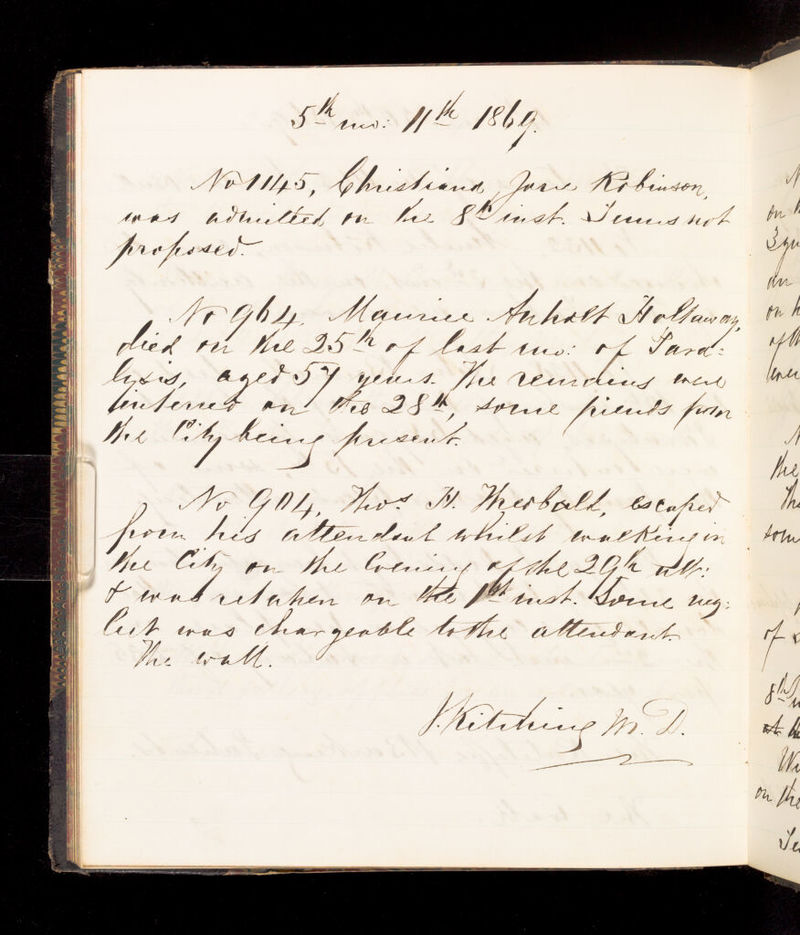 5th mo: 11th 1869.
No 1145, Christiana Jane Robinson,
was admitted on the 8th inst. Terms not
proposed.
No 964, Maurice Anholt Holtaway,
died on the 25th of last mo: of Para=
lysis, aged 57 years. The remains were
interred on the 28th, some friends from
the City being present.
No 904, Thos H. Theobald, escaped
from his attendant whilst walking in
the City on the Evening of the 29th ult:
& was retaken on the 1st inst. Some neg:
lect was chargeable to the attendant.
The wall.
J. Kitching M.D.
on
an
on
of th
were
the
of
8th
at
on the